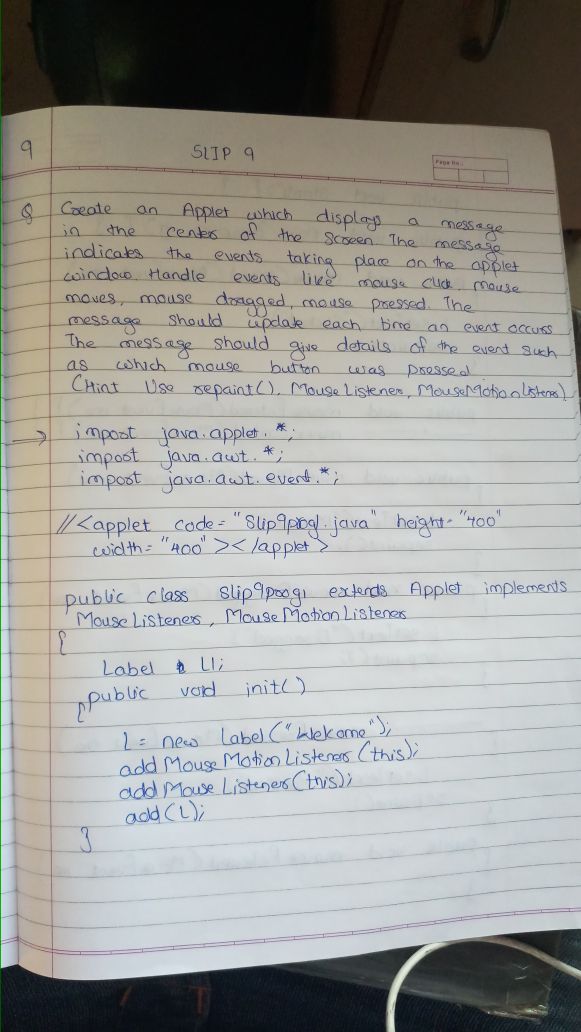 9
SLIP 9
Page No.:
Q Create an Applet which displays a message
in the center of the screen The message
indicates the events taking place on the applet
window. Handle events like mouse click, mouse
moves, mouse dragged, mouse pressed. The
message should update each time an event occurs
The message should give details of the event such
as which mouse button was pressed
(Hint Use repaint(), MouseListener, MouseMotionListener)
→ import java.applet.*;
import java.awt.*;
import java.awt.event.*;
//<applet code="Slip9prog1.java" height="400"
width="400"></applet>
public class Slip9prog1 extends Applet implements
MouseListener, MouseMotionListener
{
Label L1;
public void init()
{
L = new Label("Welcome");
addMouseMotionListener(this);
addMouseListener(this);
add(L);
}